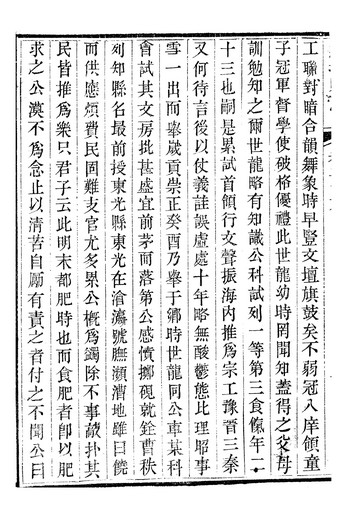 工聯對暗合韻舞象時早豎文壇旗鼓矣不弱冠入庠領童
子冠軍督學使破格優禮此世龍幼時罔聞知蓋得之父母
訓勉知之爾世龍略有知識公科試列一等第三食餼年二
十三也嗣是累試首領行文聲振海內推爲宗工豫晋三秦
又何待言後以仗義詿誤虛處十年略無酸鬱態比理昭事
雪一出而舉歲貢崇正癸酉乃舉于鄉時世龍同公車某科
會試其文房批甚虛宜前茅而落第公感憤擲硯就銓曹秩
列知縣名最前授東光縣東光在滄瀛號臨瀕濱地雖曰饒
而供應煩費民固難支官尤多累公概爲蠲除不事敲扑其
民皆推爲樂只君子云此明末都肥時也而食肥者卽以肥
求之公漠不爲念止以清苦自勵有責之者付之不聞公曰